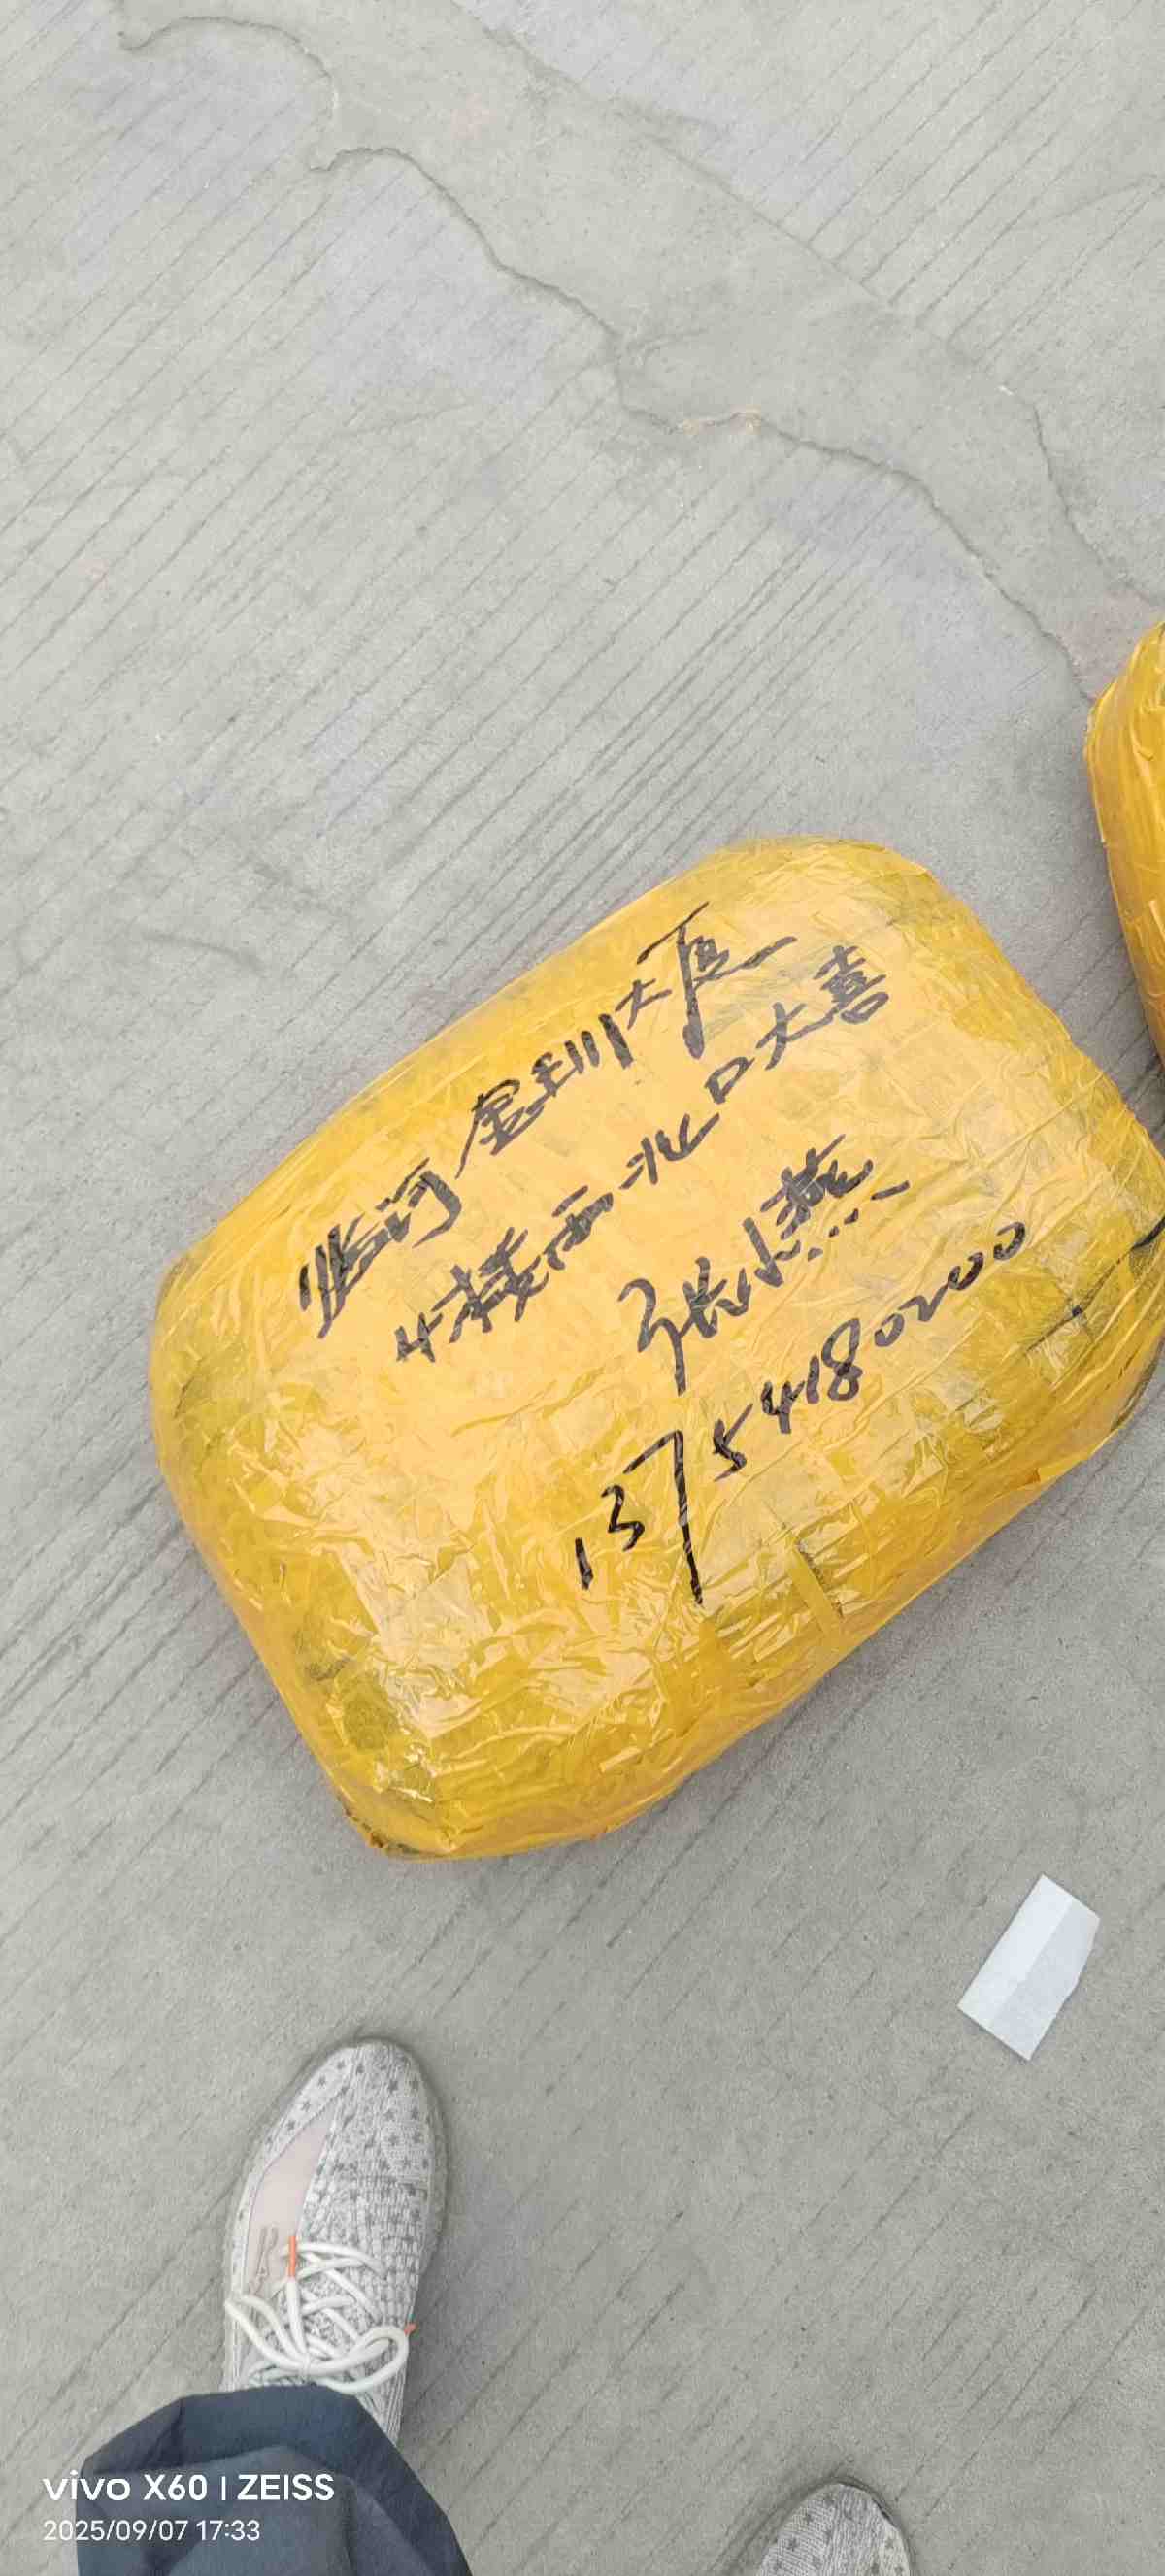 临河金川大厦
4楼西北口大喜
张小燕
13754180200
vivo X60 | ZEISS
2025/09/07 17:33